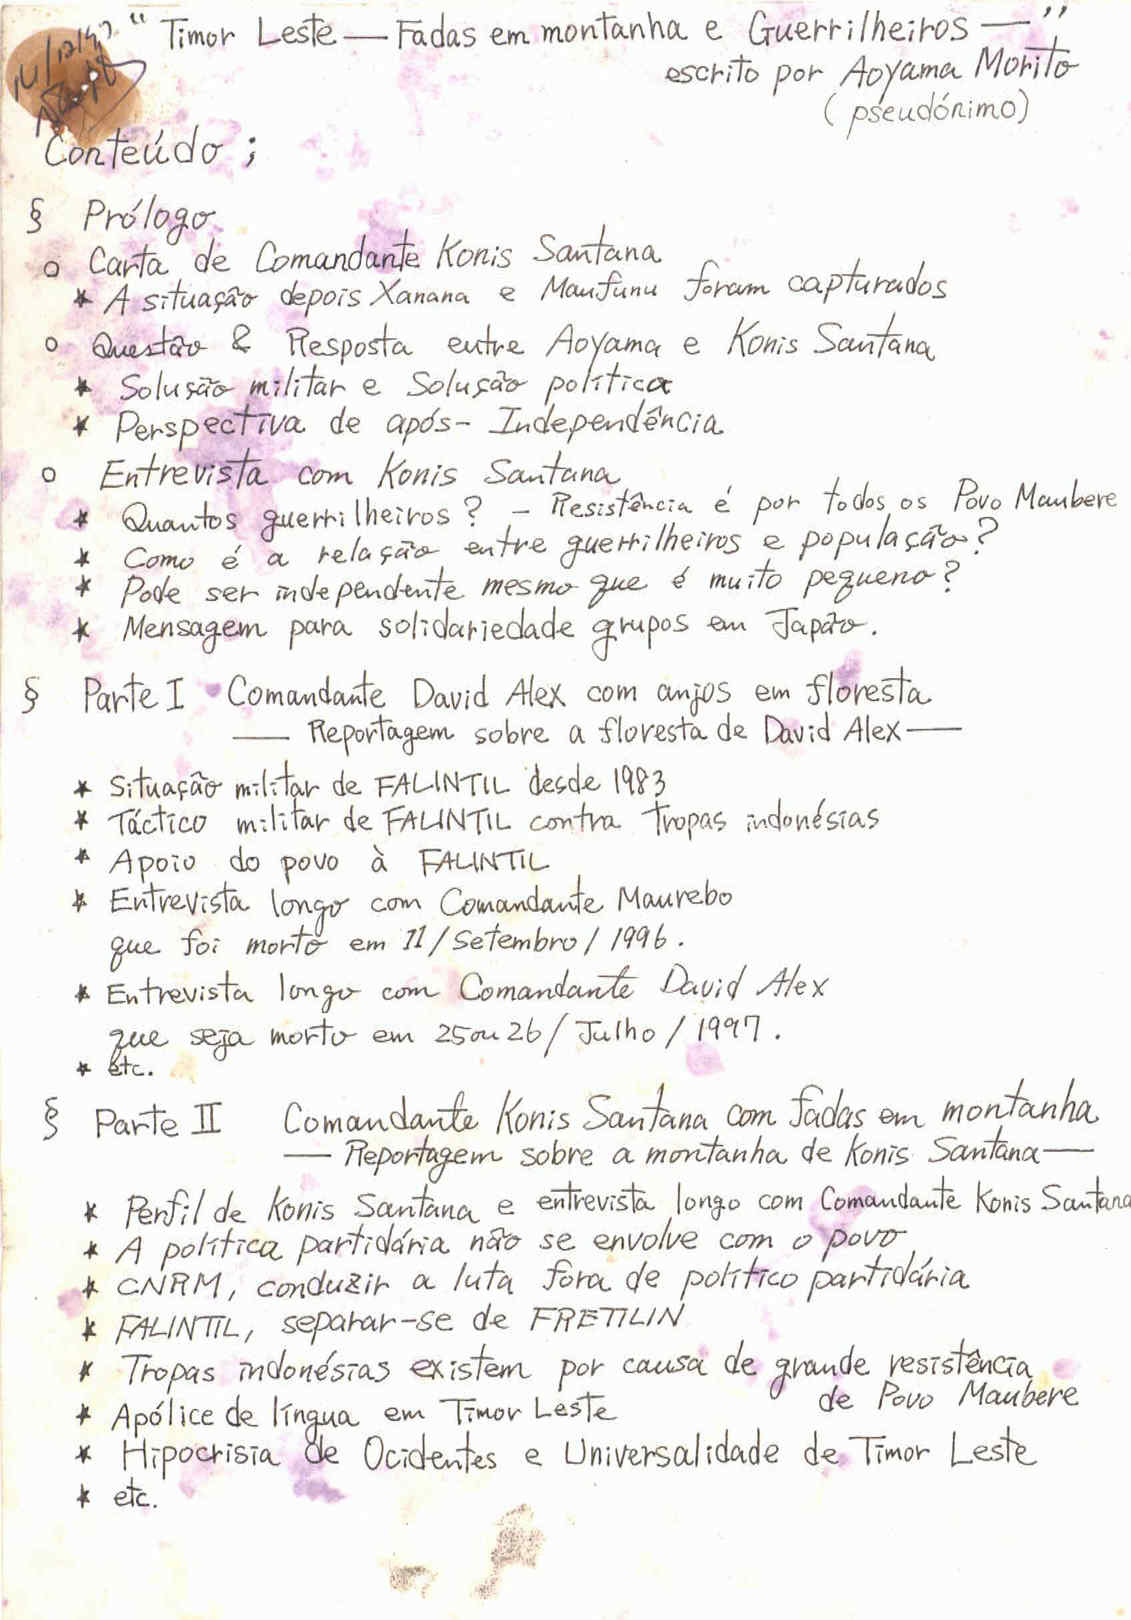 14/12/97
" Timor Leste — Fadas em montanha e Guerrilheiros — "
escrito por Aoyama Morito
(pseudónimo)
Conteúdo ;
§ Prólogo
o Carta de Comandante Konis Santana
* A situação depois Xanana e Maufunu foram capturados
o Questão & Resposta entre Aoyama e Konis Santana
* Solusão militar e Solusão política
* Perspectiva de após- Independência
o Entrevista com Konis Santana
* Quantos guerrilheiros? - Resistência é por todos os Povo Maubere
* Como é a relação entre guerrilheiros e população?
* Pode ser independente mesmo que é muito pequeno?
* Mensagem para solidariedade grupos em Japão.
§ Parte I Comandante David Alex com anjos em floresta
— Reportagem sobre a floresta de David Alex —
* Situação militar de FALINTIL desde 1983
* Táctico militar de FALINTIL contra tropas indonésias
* Apoio do povo à FALINTIL
* Entrevista longo com Comandante Maurebo
que foi morto em 11/Setembro/1996.
* Entrevista longo com Comandante David Alex
que seja morto em 25ou26/Julho/1997.
* etc.
§ Parte II Comandante Konis Santana com fadas em montanha
— Reportagem sobre a montanha de Konis Santana —
* Perfil de Konis Santana e entrevista longo com Comandante Konis Santana
* A política partidária não se envolve com o povo
* CNRM, conduzir a luta fora de político partidária
* FALINTIL, separar-se de FRETILIN
* Tropas indonésias existem por causa de grande resistência
de Povo Maubere
* Apólice de língua em Timor Leste
* Hipocrisia de Ocidentes e Universalidade de Timor Leste
* etc.